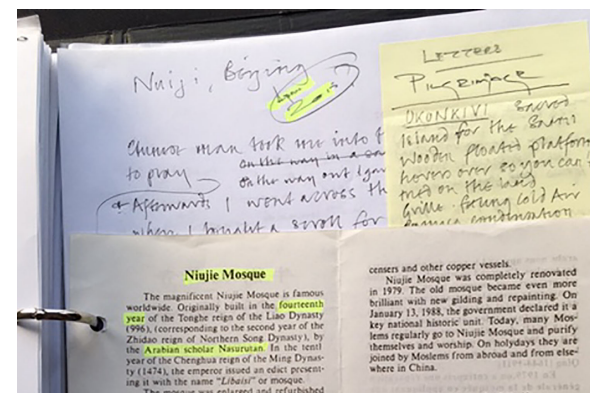 Nuiji, Beijing
Chinese man took me into t
to pray on the way in a
on the way out I
Afterwards I went across th
when I bought a scroll for
LETTERS
Pilgrimage
UKONKIVI Sacred
Island for the Sami
Wooden floated platform
hover over so you can t
on the land
Grille. Cold Air
condensation
Niujie Mosque
The magnificent Niujie Mosque is famous
worldwide. Originally built in the fourteenth
year of the Tonghe reign of the Liao Dynasty
(996), (corresponding to the second year of the
Zhidao reign of Northern Song Dynasty), by
the Arabian scholar Nasurutan. In the tenth
year of the Chenghua reign of the Ming Dynas-
ty (1474), the emperor issued an edict present-
ing it with the name "Libaisi" or mosque.
The mosque was enlarged and refurbished
censers and other copper vessels.
Niujie Mosque was completely renovated
in 1979. The old mosque became even more
brilliant with new gilding and repainting. On
January 13, 1988, the government declared it a
key national historic unit. Today, many Mos-
lems regularly go to Niujie Mosque and purify
themselves and worship. On holydays they are
joined by Moslems from abroad and from else-
where in China.